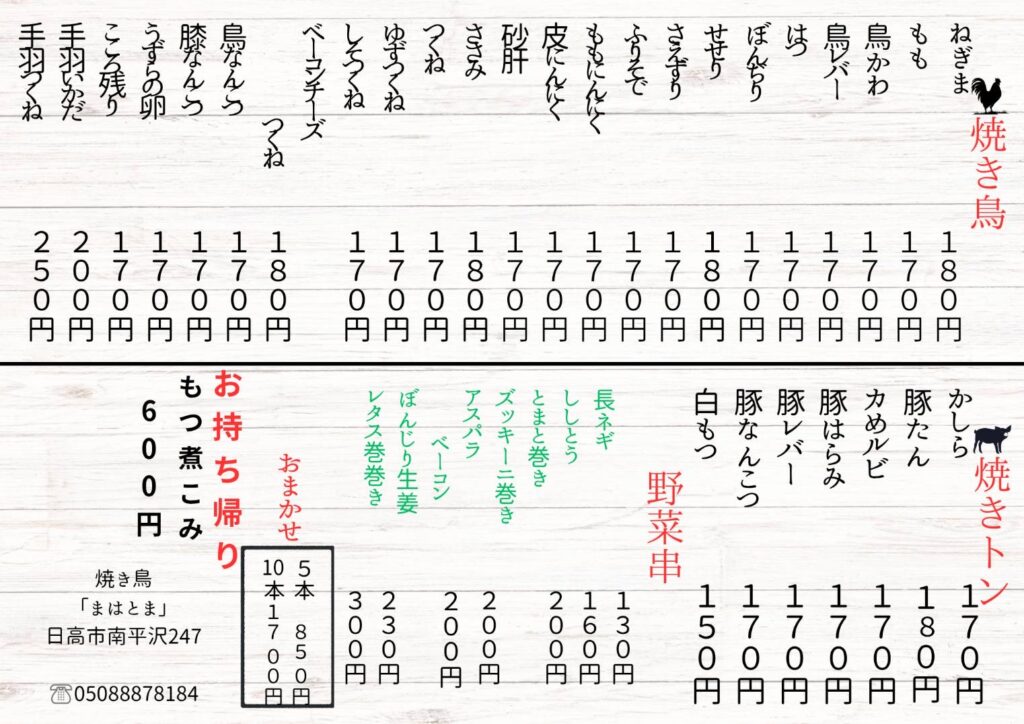 焼き鳥
ねぎま 180円
もも 170円
鳥かわ 170円
鳥レバー 170円
はつ 170円
ぼんちり 170円
せせり 180円
さえずり 170円
ふりそで 170円
ももにんにく 170円
皮にんにく 170円
砂肝 170円
ささみ 180円
つくね 170円
ゆずつくね 170円
しそつくね 170円
ベーコンチーズ
つくね 180円
鳥なんこつ 170円
膝なんこつ 170円
うずらの卵 170円
こころ残り 170円
手羽いかだ 200円
手羽つくね 250円
焼きトン
かしら 170円
豚たん 180円
カめルビ 170円
豚はらみ 170円
豚レバー 170円
豚なんこつ 170円
白もつ 150円
野菜串
長ネギ 130円
ししとう 160円
とまと巻き 200円
ズッキーニ巻き 200円
アスパラ
ベーコン 200円
ぼんじり生姜 230円
レタス巻巻き 300円
おまかせ
5本 850円
10本1700円
お持ち帰り
もつ煮こみ
600円
焼き鳥
「まはとま」
日高市南平沢247
☎05088878184